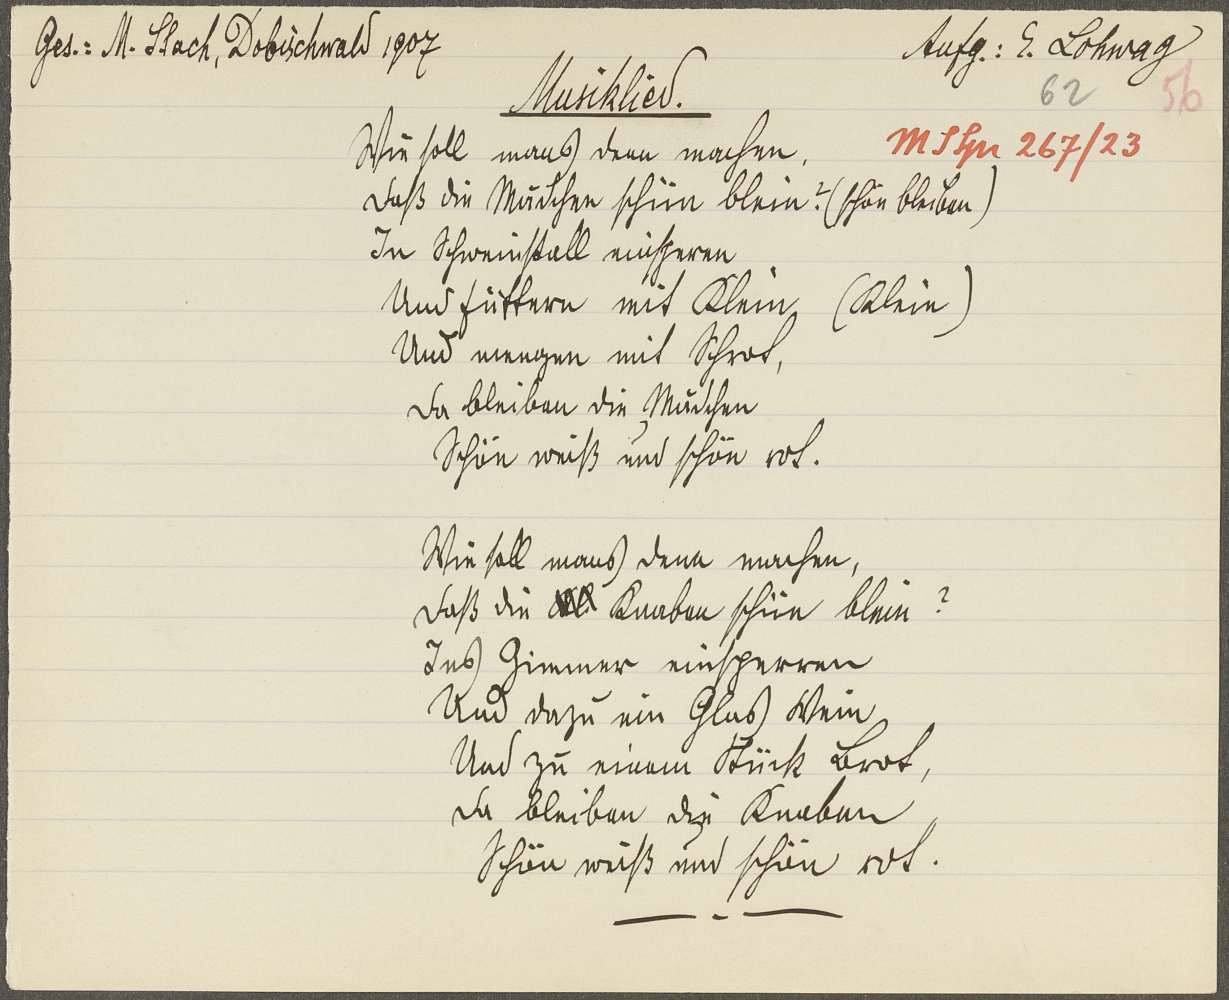 Ges.: M. Stach, Dobischwald 1907
Aufg.: E. Lohwag
62 56
Musiklied.
Wie soll mans denn machen,
267/23
Daß die Mädchen schün blein? (schön bleiben)
In Schweinstall einsperen
Und füttern mit Klein, (Klein)
Und mengen mit Schrot,
Da bleiben die Mädchen
Schön weiß und schön rot.
Wie soll mans denn machen,
Daß die Knaben schün blein?
Ins Zimmer einsperren
Und dazu ein Glas Wein
Und zu einem Stück Brot,
Da bleiben die Knaben
Schön weiß und schön rot.